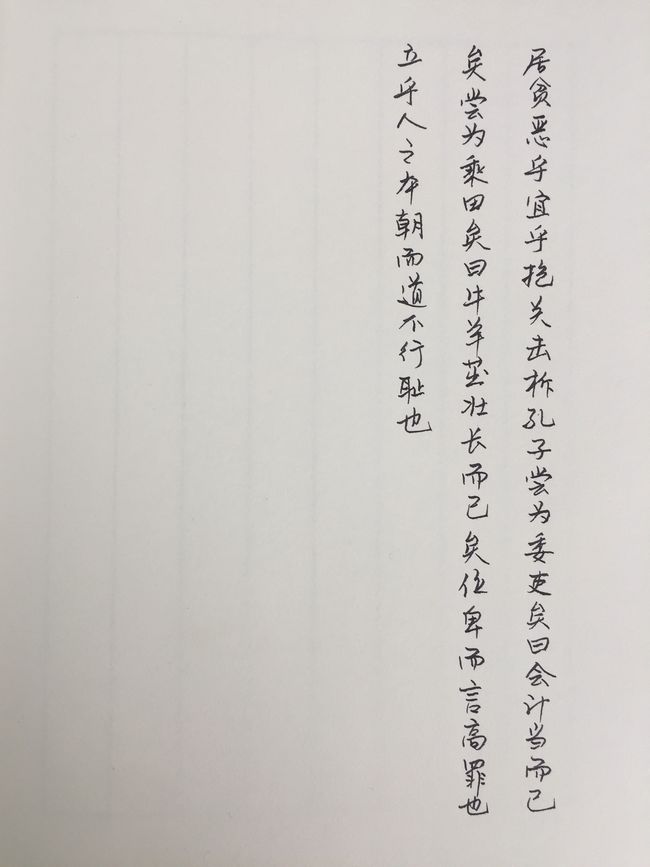 居贫恶乎宜乎抱关击柝孔子尝为委吏矣曰会计当而已
矣尝为乘田矣曰牛羊茁壮长而已矣位卑而言高罪也
立乎人之本朝而道不行耻也